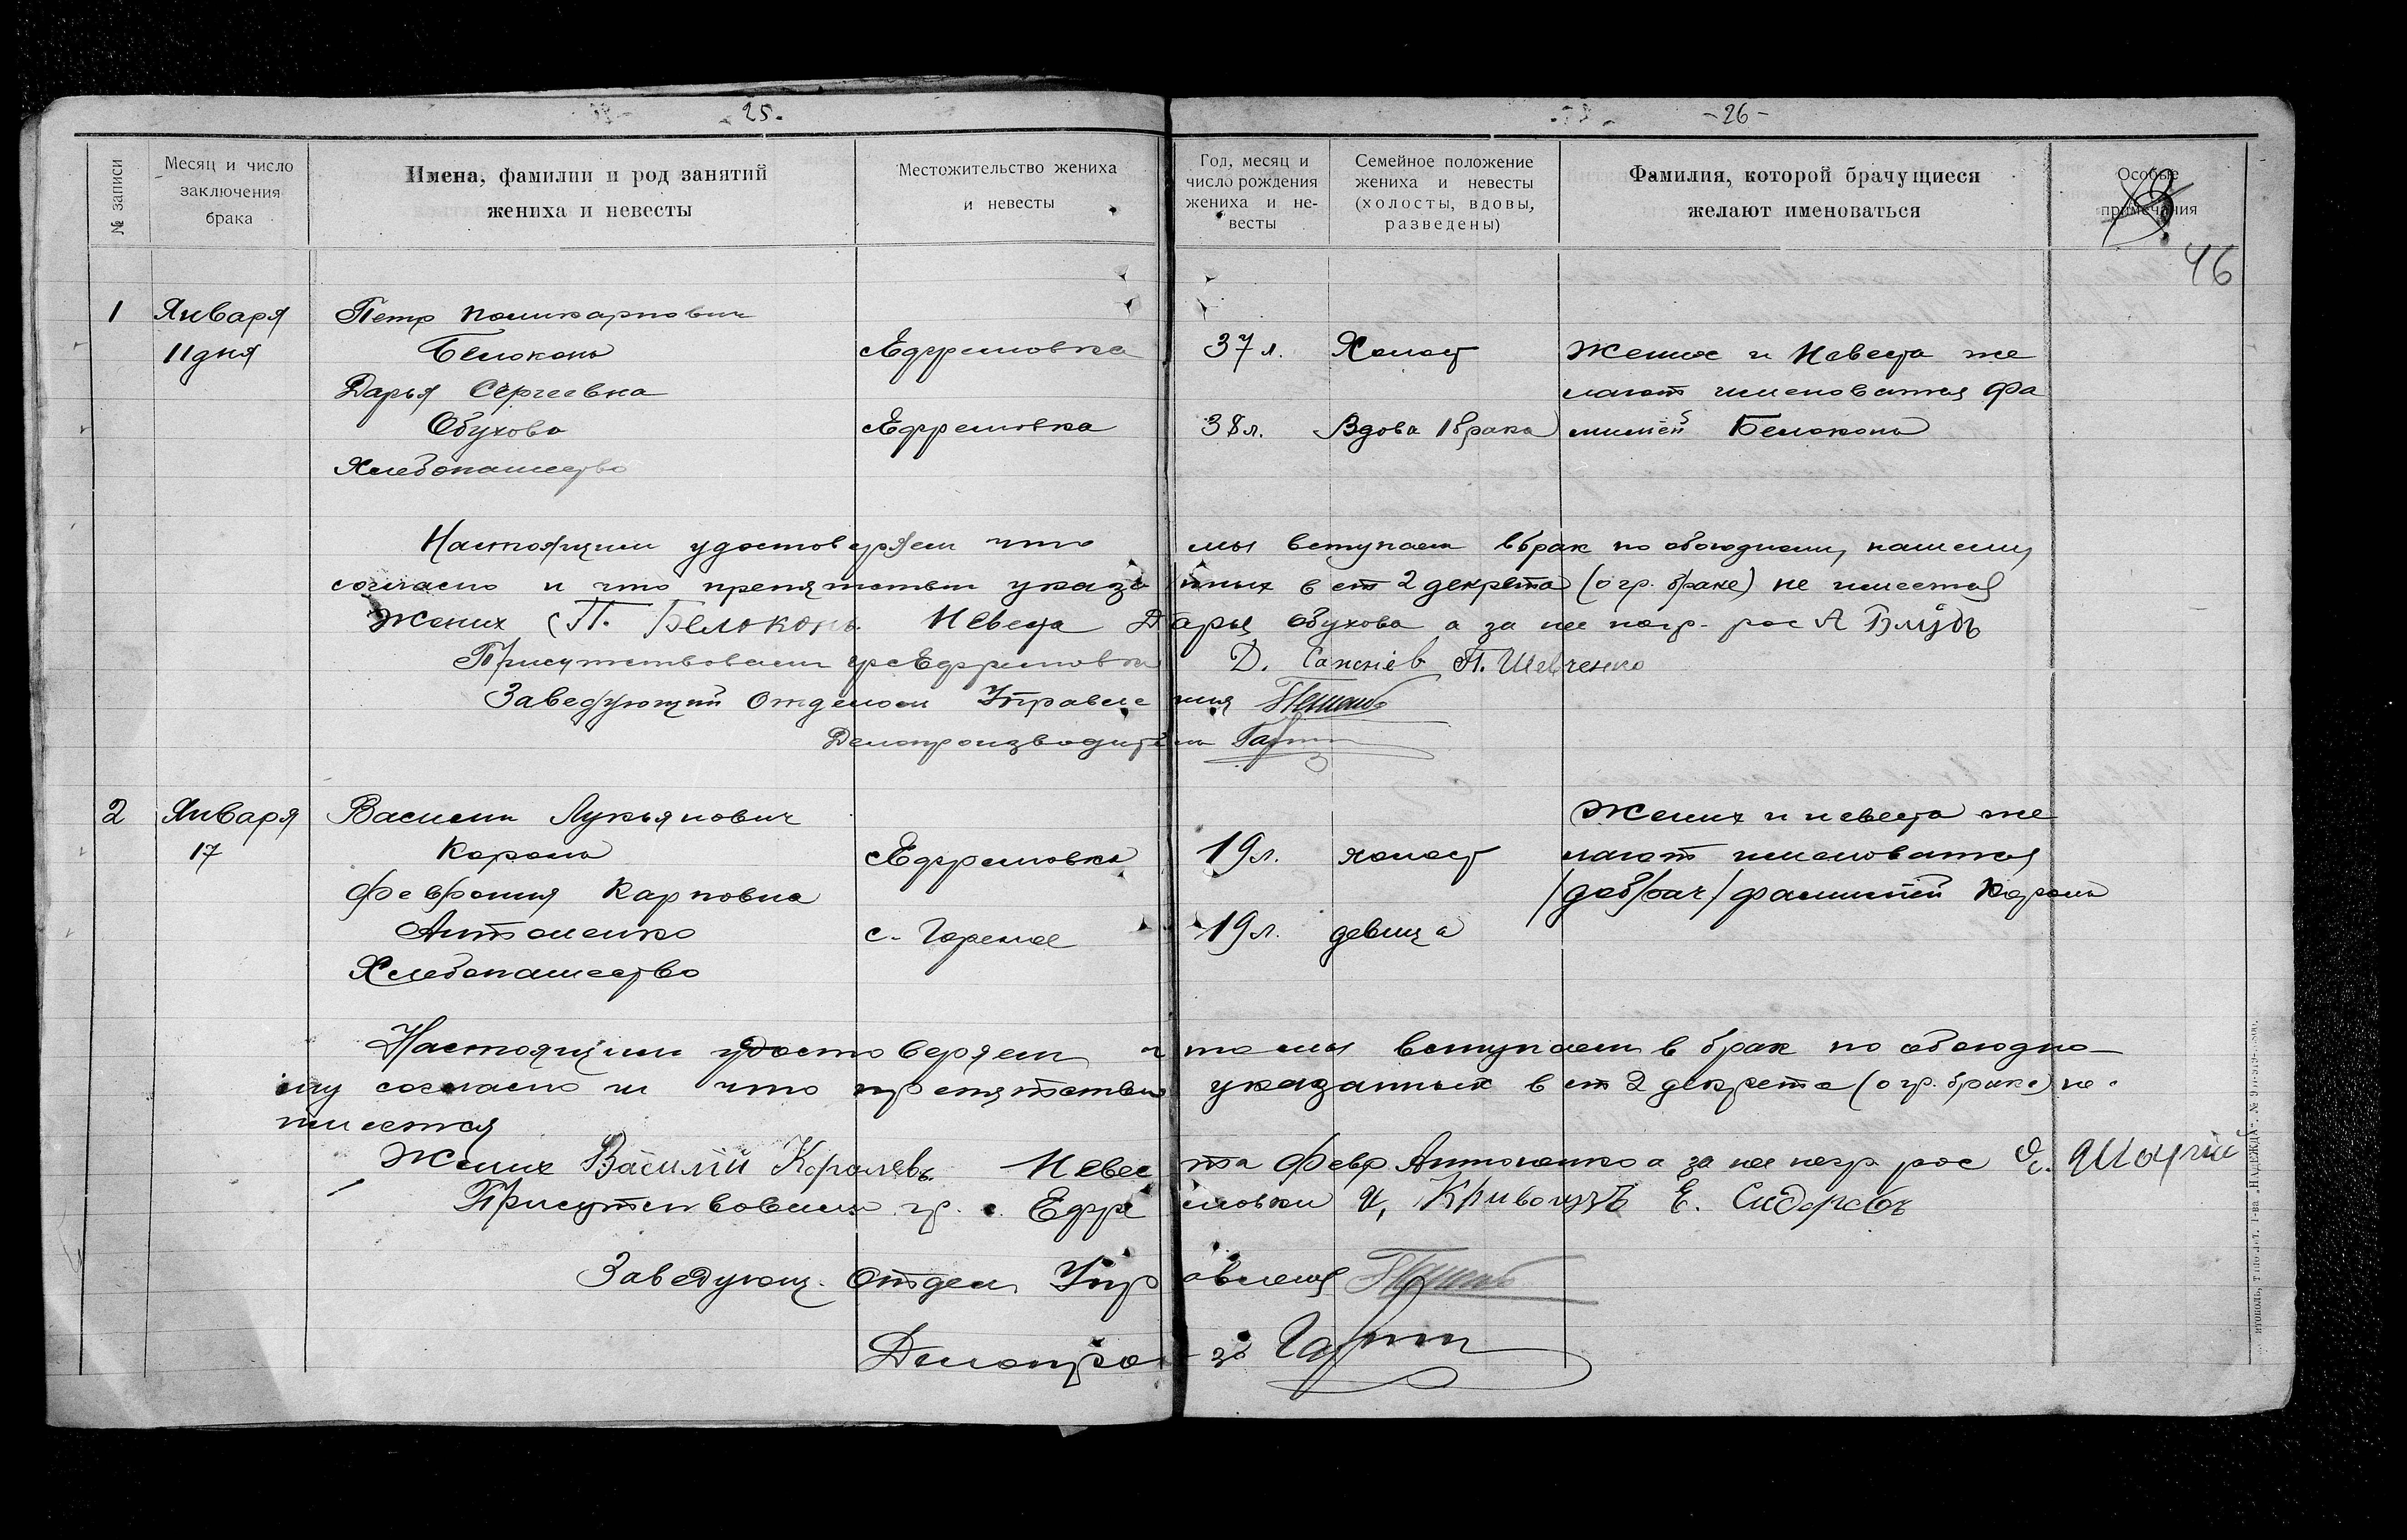 25.
-26-
№ записи
Месяц и число заключения брака
Имена, фамилии и род занятий жениха и невесты
Местожительство жениха и невесты
Год, месяц и число рождения жениха и не-весты
Семейное положение жениха и невесты (холосты, вдовы, разведены)
Фамилия, которой брачущиеся желают именоваться
Особые примечания
46
1 Января Петр Поликарпович
11 дня Белоконь Ефремовка 37 л. Холост Жених и Невеста же
Дарья Сергеевна лают именоватся фа
Обухова Ефремовка 38 л. Вдова 1 брака милией Белоконь
Хлебопашество
Настоящим удостоверяем что мы вступаем в брак по обоюдному нашему
согласию и что препятствий указанных в ст 2 декрета (о гр. браке) не имеется
Жених П. Белоконь Невеста Дарья Обухова а за нее негр. рос А
Присутствовали гр с Ефремовки Д. П. Шевченко
Заведующий Отделом Управления
Делопроизводитель
2 Января Василий Лукьянович
Жених и невеста же
17 Король Ефремовка 19 л. холост лают именоватся
Феврония Карповна /добрач/ фамилией Король
Антоненко с. Горелое 19 л. девица
Хлебопашество
Настоящим удостоверяем что мы вступаем в брак по обоюдно-
му согласию и что препятствий указанных в ст 2 декрета (о гр. браке) не
имеется
Жених Василий Королевъ Невеста Февр Антоненко а за нее негр рос
Присутствовали гр. с. Ефремовки Е. Сидоровъ
Заведующ. Отдел. Управления
Делопроиз